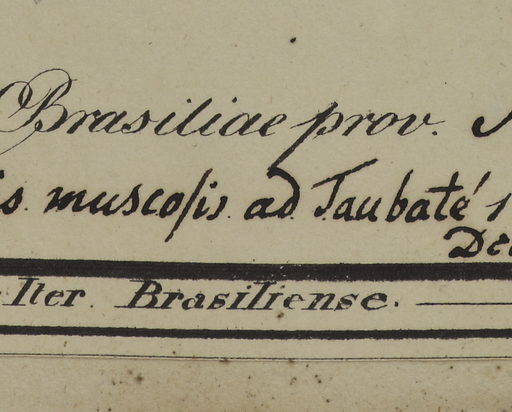 Brasiliae prov.
muscoſis ad Taubaté
Iter Brasiliense.